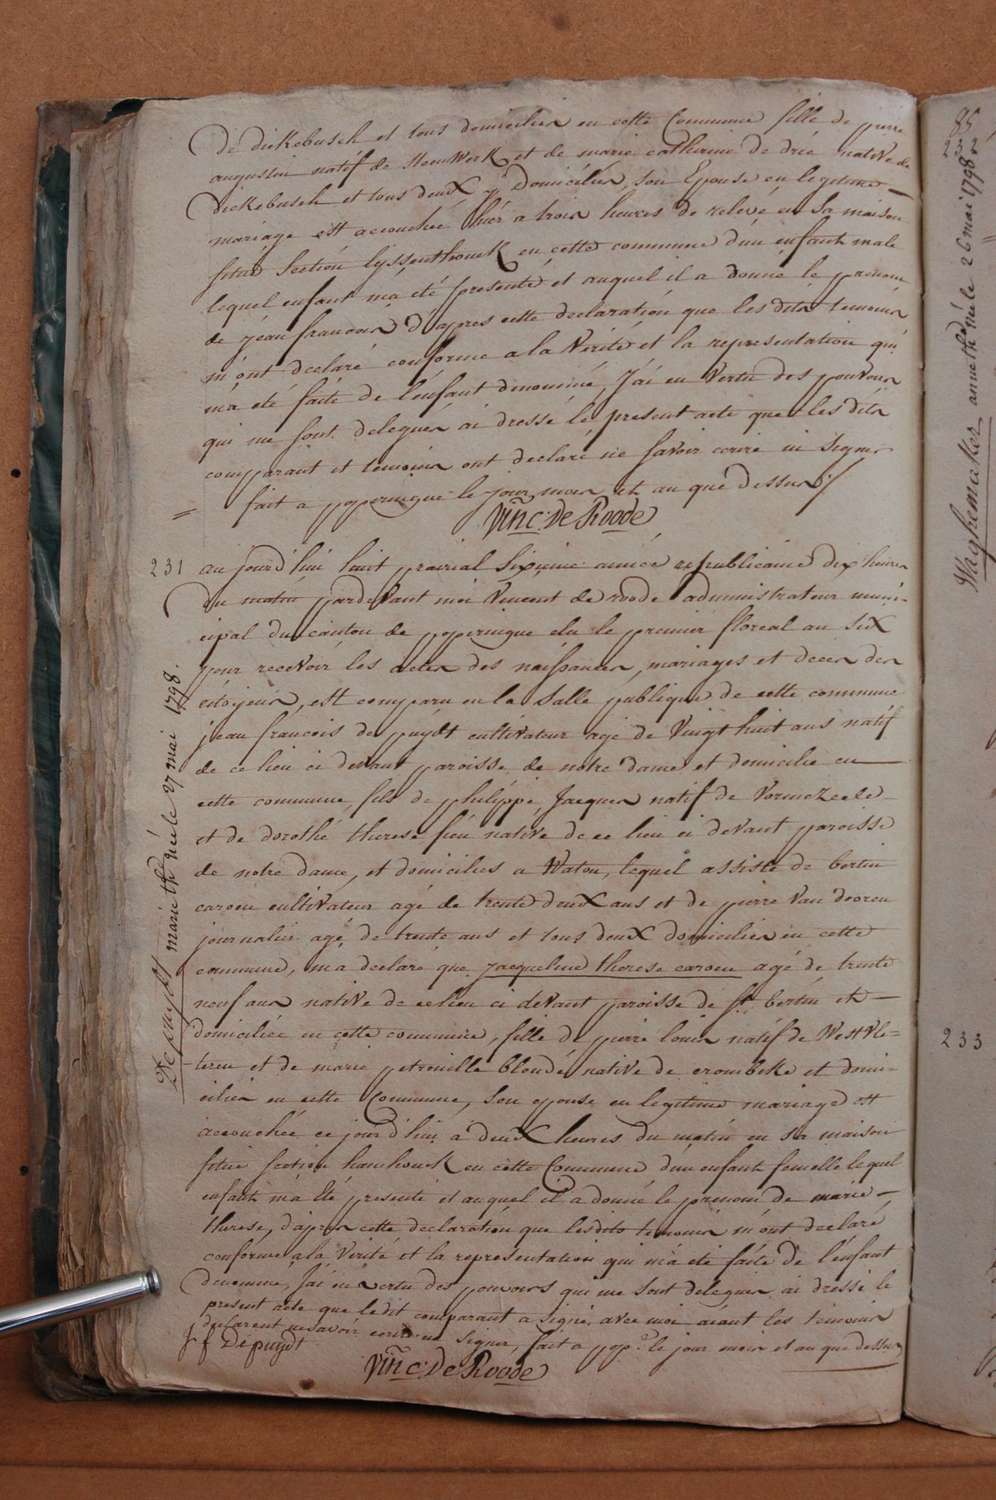 De Dickebusch et tous domicilies en cette Commune fille de pierre
augustin natif de Steenwerk et de marie catherine de drie native de
Dickebusch et tous deux y Domicilies, son Epouse en legitime
mariage est accouchée hier a trois heures de relevé en Sa maison
située Section Lyssenthouck en cette commune d'un enfant male
lequel enfant m'a eté presenté et auquel il a donné le prenom
de jean francois D'apres cette declaration que les dits temoins
m'ont declaré conforme a la Verité et la representation qui
m'a été faite de l'enfant denommé, J'ai en Vertu des pouvoirs
qui me sont delegués ai dressé le present acte que les dits
comparant et temoins ont declaré ne savoir ecrire ni signer
= fait a poperingue le jour mois et an que dessus ·/.
Vinc: De Roode
231 au jourd'hui huit prairial Sixieme année republicaine dix heures
Du matin pardevant moi Vincent de roode administrateur muni-
cipal du canton de poperingue elu le premier floreal an six
pour recevoir les actes des naissances, mariages et deces des
citojens, est comparu en la Salle publique de cette commune
jean francois de puydt cultivateur agé de Vingt huit ans natif
de ce lieu ci devant paroisse de notre dame et domicilié en
cette commune, fils de philippe Jacques natif de Vormezeele
et de dorothé therese fieu native de ce lieu ci devant paroisse
de notre dame, et domicilies a Watou, lequel assisté de bertin
caroen cultivateur agé de trente deux ans et de pierre Van dooren
journalier agé de trente ans et tous deux domicilies en cette
commune, m'a declaré que jacqueline therese caroen agé de trente
neuf ans native de ce lieu ci devant paroisse de St bertin et
domiciliée en cette commune, fille de pierre louis natif de Westvle=
teren et de marie petronille blondé native de crombeke et domi-
cilies en cette Commune, Son epouse en legitime mariage est
accouchée ce jourd'hui a deux heures du matin en sa maison
située section hamhouck en cette Commune d'un enfant femelle lequel
enfant m'a eté presenté et auquel il a donné le prenom de marie
therese, d'apres cette declaration que lesdits temoins m'ont declaré
conforme a la Verité et la representation qui m'a eté faite de l'enfant
denommé, J'ai en vertu des pouvoirs qui me sont delegués ai dressé le
present acte que ledit comparant a signé avec moi aiant les temoins
declarent ne savoir ecrire ni signer, fait a pop.e le jour mois et an que dessus
j f Depuydt
Vinc: De Roode
Depuydt marie th. née le 27 mai 1798.
85
232
Waghemaker anne thé née le 26 mai 1798
233